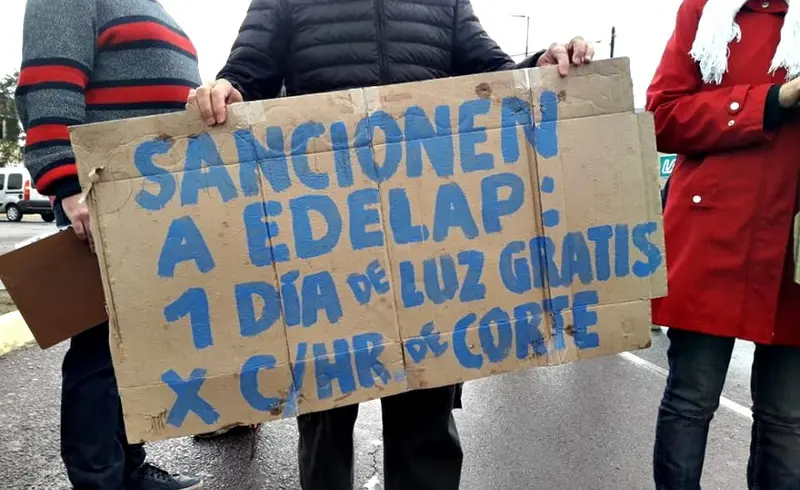 SANCIONEN
A EDELAP:
1 DÍA DE LUZ GRATIS
X C/HR. DE CORTE